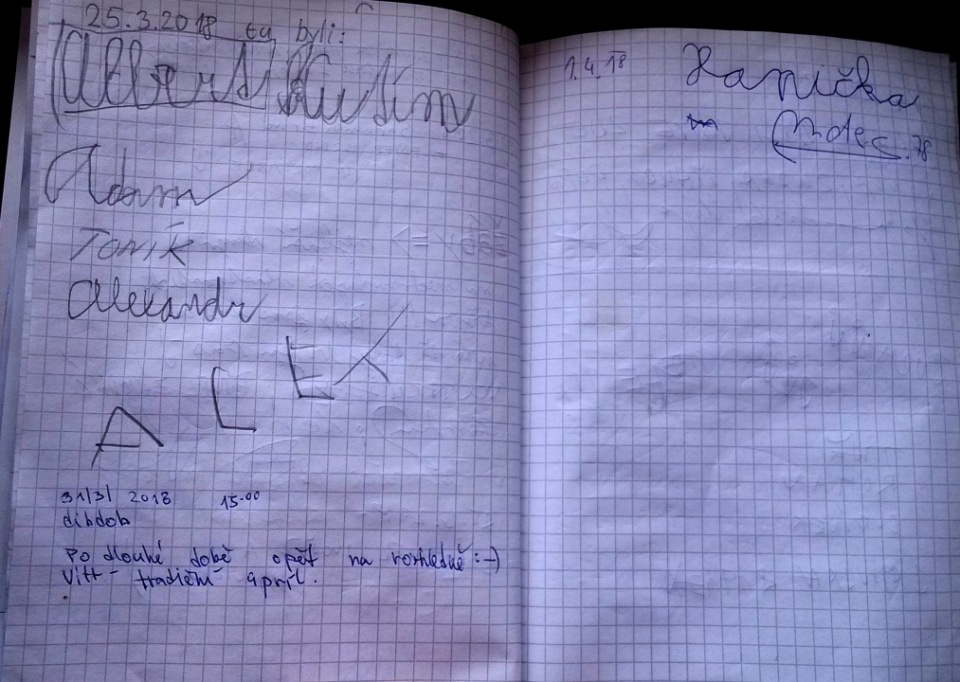 25.3.2018 tu byli:
Albert
Adam
Toník
Alexandr
ALEX
31/3/ 2018 15.00
dibdob
Po dlouhé době opět na rozhledně :-)
Vítr - tradiční apríl.
1.4.18 Hanička